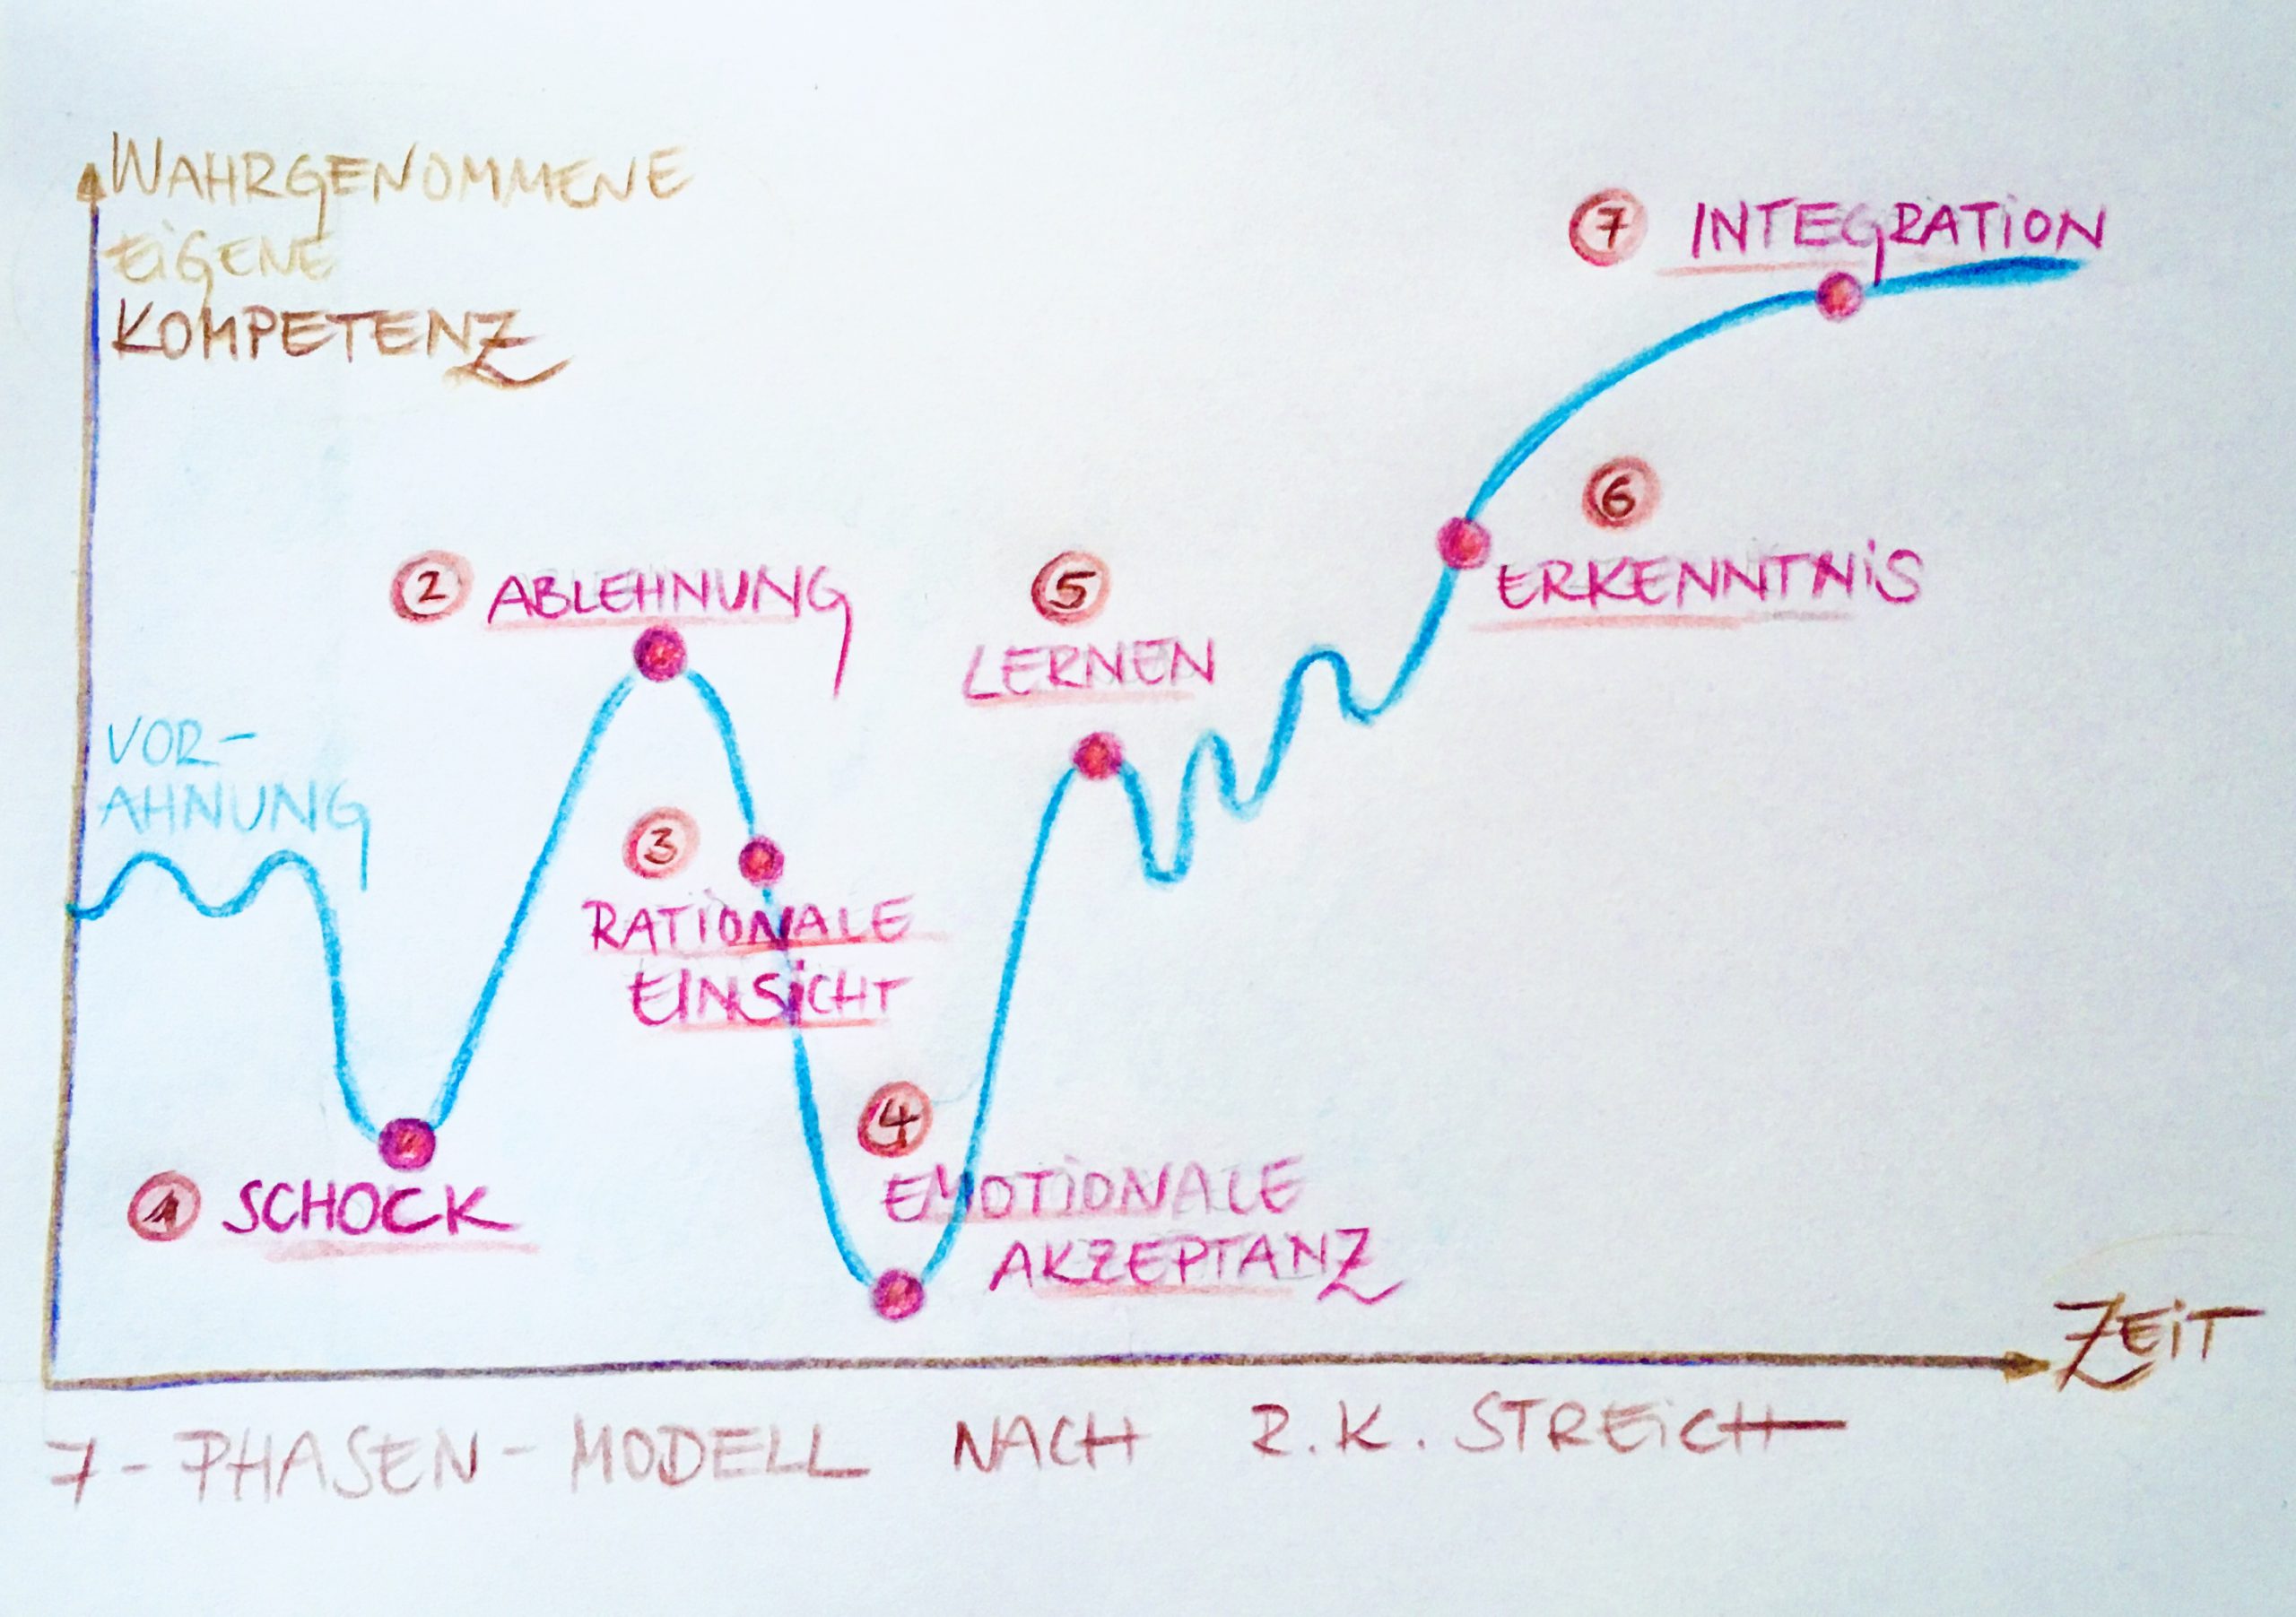 WAHRGENOMMENE
EIGENE
KOMPETENZ
7 INTEGRATION
6
ERKENNTNIS
2 ABLEHNUNG
5
LERNEN
VOR-
AHNUNG
3
RATIONALE
EINSICHT
4
EMOTIONALE
AKZEPTANZ
1 SCHOCK
ZEIT
7-PHASEN-MODELL NACH R.K. STREICH